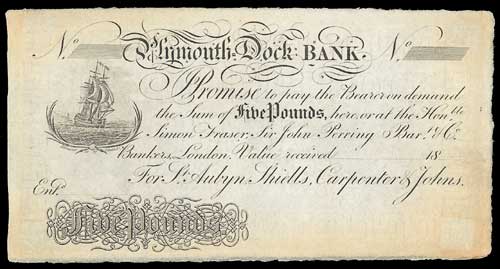 No Plymouth-Dock BANK. No
I Promise to pay the Bearer on demand
the Sum of Five Pounds, here, or at the Honble
Simon Fraser, Sir John Perring Bart. & Co.
Bankers, London. Value received 18
For St. Aubyn, Shiells, Carpenter & Johns.
Entd.
Five Pounds